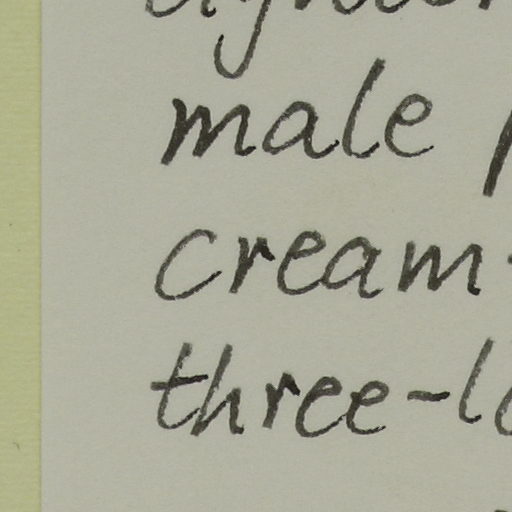 male
cream-
three-l